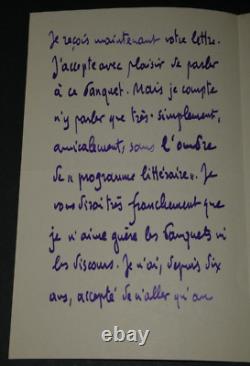 Je reçois maintenant votre lettre.
J'accepte avec plaisir de parler
à ce banquet. Mais je compte
n'y parler que très simplement,
amicalement, sans l'ombre
de « programme littéraire ». Je
vous dirai très franchement que
je n'aime guère les banquets ni
les discours. Je n'ai, depuis dix
ans, accepté de n'aller qu'au
124-collection.com